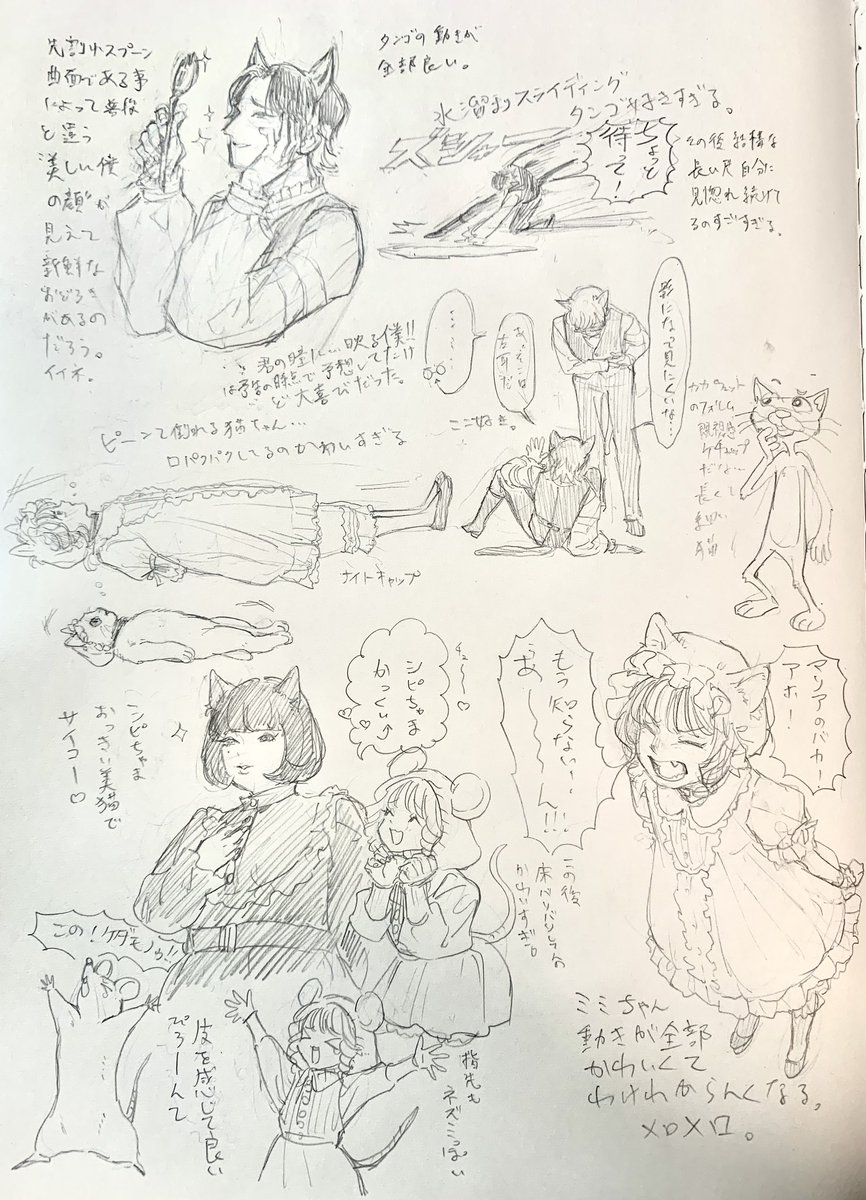 先割れスプーン
曲面である事
によって普段
と違う
"美しい僕
の顔"が
見えて
新鮮な
おどろき
があるの
だろう。
イイネ。
タンゴの動きが
全部良い。
水溜りスライディング
タンゴ好きすぎる。
ちょっと
待って!
その後結構な
長い尺自分に
見惚れ続けて
るのすごすぎる。
君の瞳に…映る僕!!
は予告の時点で予想してたけ
ど大喜びだった。
影になって見にくいな…
あっそこは
お耳だ
ここ好き。
ピーンて倒れる猫ちゃん…
口パクパクしてるのかわいすぎる
ナイトキャップ
のフォルム
既視感
ケチャップ
だな…
長くし
細い
猫
シピちゃま
おっきい美猫で
サイコー♡
チュ〜〜♡
シピちゃま
かっこい〜
もう知らない〜
〜ん!!!
マリアのバカー
アホ!
この後
床バリバリしてるの
かわいすぎ。
この!ケダモノゥ!!
皮を感じて良い
ぴろーんて
指先も
ネズミっぽい
ミミちゃん
動きが全部
かわいくて
わけわからんくなる。
メロメロ。